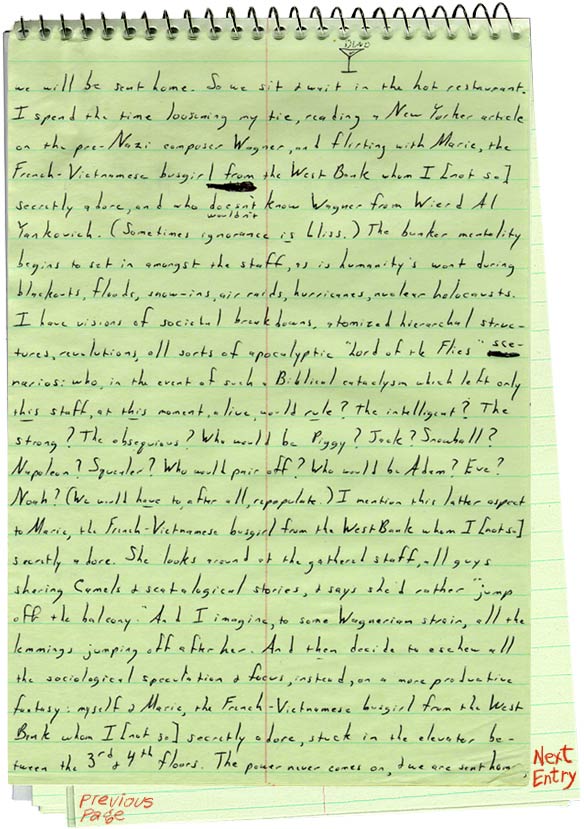 DINO
we will be sent home. So we sit & wait in the hot restaurant.
I spend the time loosening my tie, reading a New Yorker article
on the pre-Nazi composer Wagner, and flirting with Marie, the
French-Vietnamese busgirl from the West Bank whom I [not so]
secretly adore, and who doesn't know Wagner from Wierd Al
wouldn't
Yankovich. (Sometimes ignorance is bliss.) The bunker mentality
begins to set in amongst the staff, as is humanity's wont during
blackouts, floods, snow-ins, air raids, hurricanes, nuclear holocausts.
I have visions of societal breakdowns, atomized hierarchal struc-
tures, revolutions, all sorts of apocalyptic "Lord of the Flies" sce-
narios: who, in the event of such a Biblical cataclysm which left only
this staff, at this moment, alive, would rule? The intelligent? The
strong? The obsequious? Who would be Piggy? Jack? Snowball?
Napoleon? Squealer? Who would pair off? Who would be Adam? Eve?
Noah? (We would have to, after all, repopulate.) I mention this latter aspect
to Marie, the French-Vietnamese busgirl from the West Bank whom I [not so]
secretly adore. She looks around at the gathered staff, all guys
sharing Camels & scatological stories, & says she'd rather "jump
off the balcony." And I imagine, to some Wagnerian strain, all the
lemmings jumping off after her. And then decide to eschew all
the sociological speculation & focus, instead, on a more productive
fantasy: myself & Marie, the French-Vietnamese busgirl from the West
Bank whom I [not so] secretly adore, stuck in the elevator be-
tween the 3rd & 4th floors. The power never comes on, & we are sent home.
Next
Entry
Previous
Page